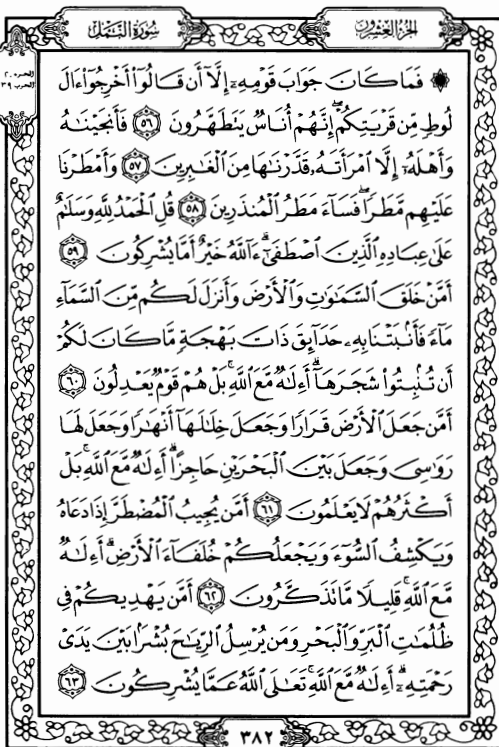 سُورَةُ النَّمْلِ
الجُزْءُ العِشْرُونَ
الحزب ٣٩
۞ فَمَا كَانَ جَوَابَ قَوْمِهِۦٓ إِلَّآ أَن قَالُوٓا۟ أَخْرِجُوٓا۟ ءَالَ
لُوطٍ مِّن قَرْيَتِكُمْ ۖ إِنَّهُمْ أُنَاسٌ يَتَطَهَّرُونَ ٥٦ فَأَنجَيْنَـٰهُ
وَأَهْلَهُۥٓ إِلَّا ٱمْرَأَتَهُۥ قَدَّرْنَـٰهَا مِنَ ٱلْغَـٰبِرِينَ ٥٧ وَأَمْطَرْنَا
عَلَيْهِم مَّطَرًا ۖ فَسَآءَ مَطَرُ ٱلْمُنذَرِينَ ٥٨ قُلِ ٱلْحَمْدُ لِلَّهِ وَسَلَـٰمٌ
عَلَىٰ عِبَادِهِ ٱلَّذِينَ ٱصْطَفَىٰٓ ۗ ءَآللَّهُ خَيْرٌ أَمَّا يُشْرِكُونَ ٥٩
أَمَّنْ خَلَقَ ٱلسَّمَـٰوَٰتِ وَٱلْأَرْضَ وَأَنزَلَ لَكُم مِّنَ ٱلسَّمَآءِ
مَآءً فَأَنۢبَتْنَا بِهِۦ حَدَآئِقَ ذَاتَ بَهْجَةٍ مَّا كَانَ لَكُمْ
أَن تُنۢبِتُوا۟ شَجَرَهَآ ۗ أَءِلَـٰهٌ مَّعَ ٱللَّهِ ۚ بَلْ هُمْ قَوْمٌ يَعْدِلُونَ ٦٠
أَمَّن جَعَلَ ٱلْأَرْضَ قَرَارًا وَجَعَلَ خِلَـٰلَهَآ أَنْهَـٰرًا وَجَعَلَ لَهَا
رَوَٰسِىَ وَجَعَلَ بَيْنَ ٱلْبَحْرَيْنِ حَاجِزًا ۗ أَءِلَـٰهٌ مَّعَ ٱللَّهِ ۚ بَلْ
أَكْثَرُهُمْ لَا يَعْلَمُونَ ٦١ أَمَّن يُجِيبُ ٱلْمُضْطَرَّ إِذَا دَعَاهُ
وَيَكْشِفُ ٱلسُّوٓءَ وَيَجْعَلُكُمْ خُلَفَآءَ ٱلْأَرْضِ ۗ أَءِلَـٰهٌ
مَّعَ ٱللَّهِ ۚ قَلِيلًا مَّا تَذَكَّرُونَ ٦٢ أَمَّن يَهْدِيكُمْ فِى
ظُلُمَـٰتِ ٱلْبَرِّ وَٱلْبَحْرِ وَمَن يُرْسِلُ ٱلرِّيَـٰحَ بُشْرًۢا بَيْنَ يَدَىْ
رَحْمَتِهِۦٓ ۗ أَءِلَـٰهٌ مَّعَ ٱللَّهِ ۚ تَعَـٰلَى ٱللَّهُ عَمَّا يُشْرِكُونَ ٦٣
٣٨٢